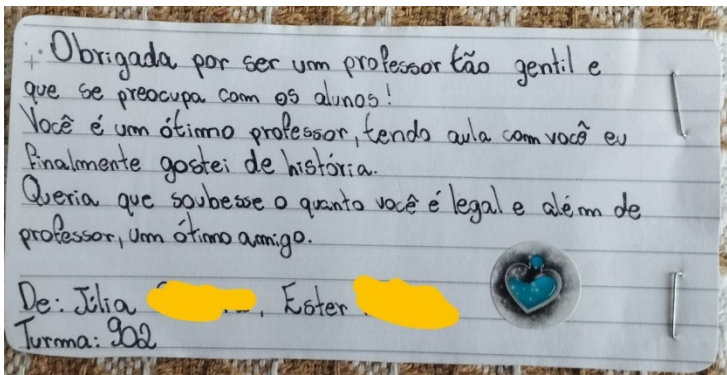 Obrigada por ser um professor tão gentil e
que se preocupa com os alunos!
Você é um ótimo professor, tendo aula com você eu
finalmente gostei de história.
Queria que soubesse o quanto você é legal e além de
professor, um ótimo amigo.
De: Júlia , Ester
Turma: 902